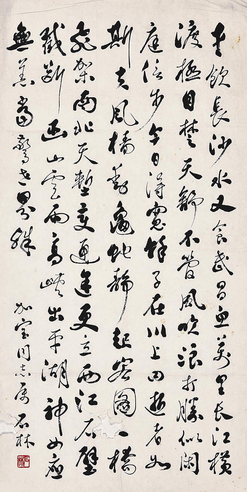 才饮长沙水又食武昌鱼万里长江横
渡极目楚天舒不管风吹浪打胜似闲
庭信步今日得宽馀子在川上曰逝者如
斯夫风樯动龟蛇静起宏图一桥
飞架南北天堑变通途更立西江石壁
截断巫山云雨高峡出平湖神女应
无恙当惊世界殊
加宝同志属 石林